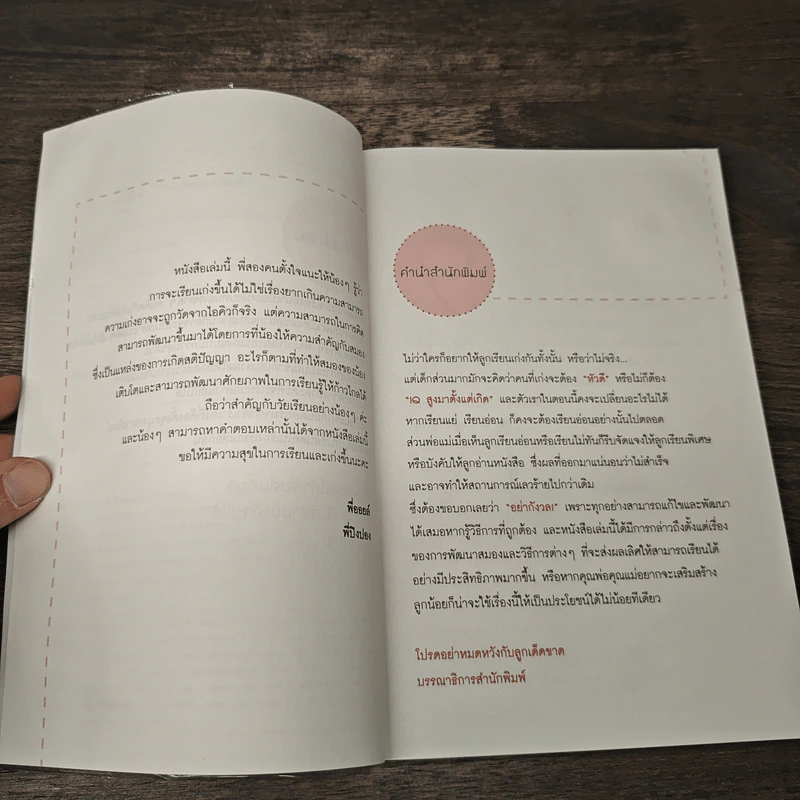 หนังสือเล่มนี้ พี่สองคนตั้งใจแนะให้น้องๆ รู้ว่า
การจะเรียนเก่งขึ้นได้ไม่ใช่เรื่องยากเกินความสามารถ
ความเก่งอาจจะถูกวัดจากไอคิวก็จริง แต่ความสามารถในการคิด
สามารถพัฒนาขึ้นมาได้โดยการที่น้องให้ความสำคัญกับสมอง
ซึ่งเป็นแหล่งของการเกิดสติปัญญา อะไรก็ตามที่ทำให้สมองของน้อง
เติบโตและสามารถพัฒนาศักยภาพในการเรียนรู้ให้ก้าวไกลได้
ถือว่าสำคัญกับวัยเรียนอย่างน้องๆ ค่ะ
และน้องๆ สามารถหาคำตอบเหล่านั้นได้จากหนังสือเล่มนี้
ขอให้มีความสุขในการเรียนและเก่งขึ้นนะคะ
พี่ออยล์
พี่ปิงปอง
คำนำสำนักพิมพ์
ไม่ว่าใครก็อยากให้ลูกเรียนเก่งกันทั้งนั้น หรือว่าไม่จริง...
แต่เด็กส่วนมากมักจะคิดว่าคนที่เก่งจะต้อง "หัวดี" หรือไม่ก็ต้อง
"IQ สูงมาตั้งแต่เกิด" และตัวเราในตอนนี้คงจะเปลี่ยนอะไรไม่ได้
หากเรียนแย่ เรียนอ่อน ก็คงจะต้องเรียนอ่อนอย่างนั้นไปตลอด
ส่วนพ่อแม่เมื่อเห็นลูกเรียนอ่อนหรือเรียนไม่ทันก็รีบจัดแจงให้ลูกเรียนพิเศษ
หรือบังคับให้ลูกอ่านหนังสือ ซึ่งผลที่ออกมาแน่นอนว่าไม่สำเร็จ
และอาจทำให้สถานการณ์เลวร้ายไปกว่าเดิม
ซึ่งต้องขอบอกเลยว่า "อย่ากังวล!" เพราะทุกอย่างสามารถแก้ไขและพัฒนา
ได้เสมอหากรู้วิธีการที่ถูกต้อง และหนังสือเล่มนี้ได้มีการกล่าวถึงตั้งแต่เรื่อง
ของการพัฒนาสมองและวิธีการต่างๆ ที่จะส่งผลเลิศให้สามารถเรียนได้
อย่างมีประสิทธิภาพมากขึ้น หรือหากคุณพ่อคุณแม่อยากจะเสริมสร้าง
ลูกน้อยก็น่าจะใช้เรื่องนี้ให้เป็นประโยชน์ได้ไม่น้อยทีเดียว
โปรดอย่าหมดหวังกับลูกเด็ดขาด
บรรณาธิการสำนักพิมพ์